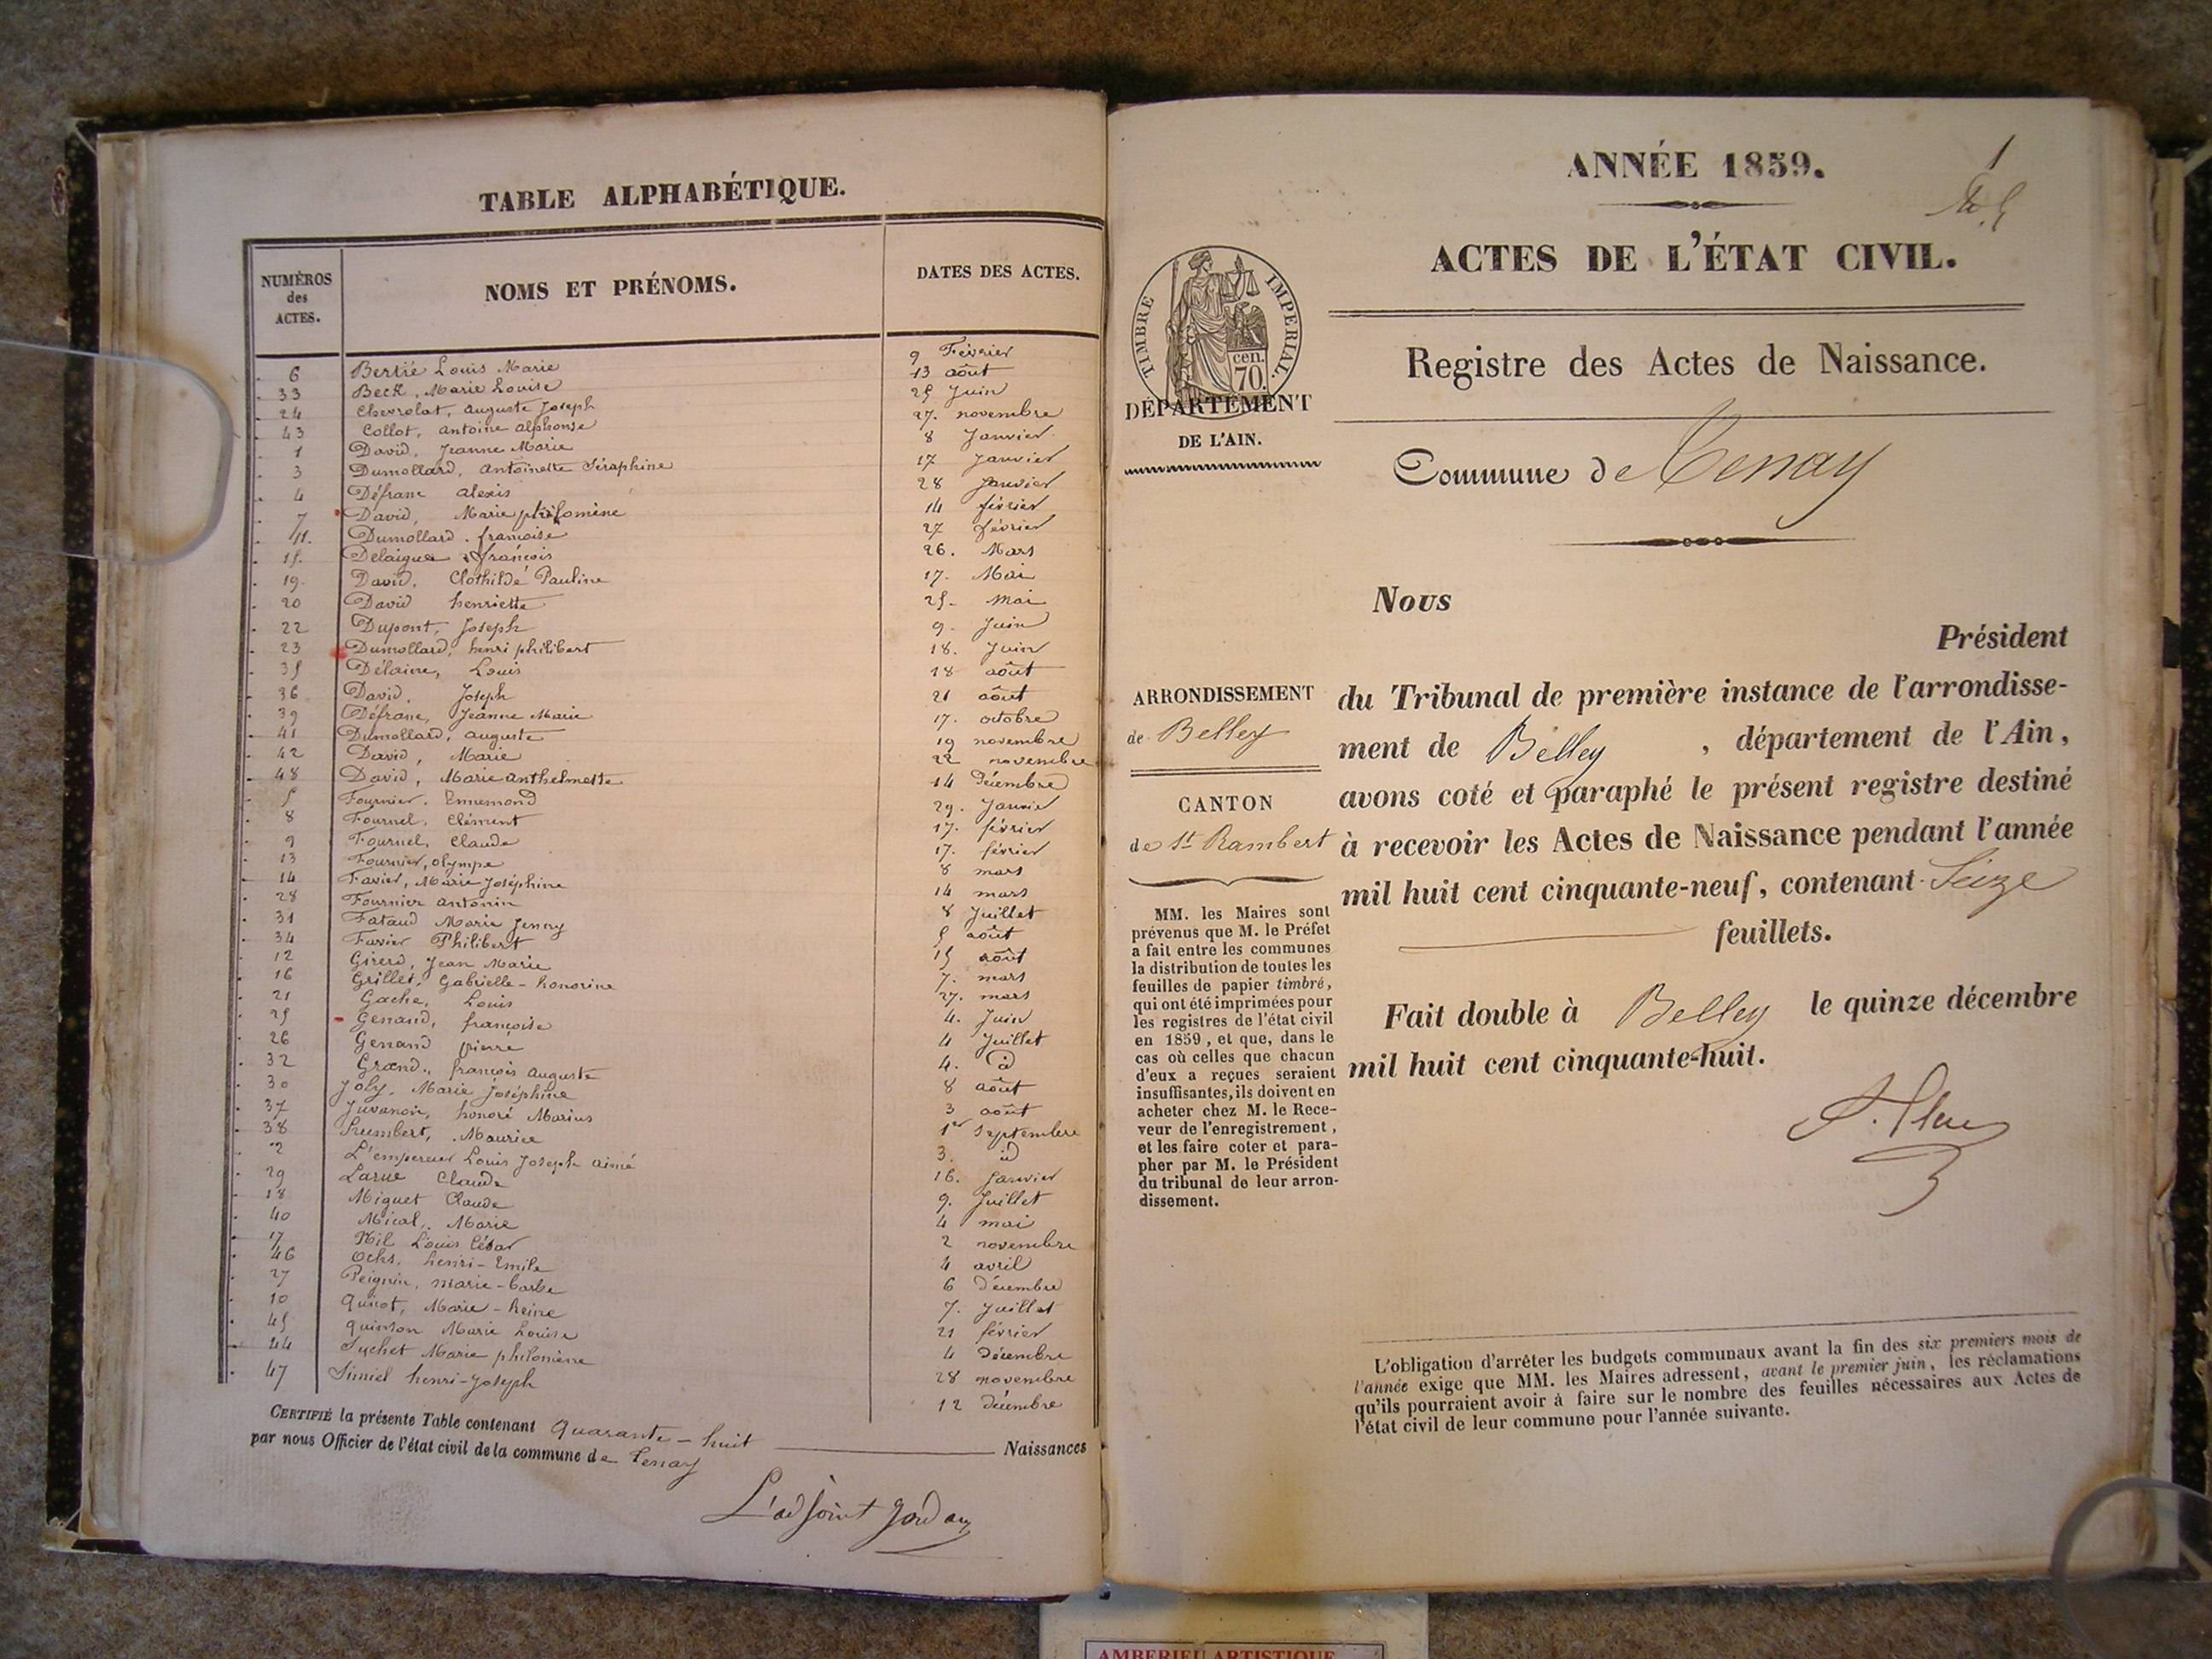 TABLE ALPHABÉTIQUE.
NUMÉROS des ACTES. NOMS ET PRÉNOMS. DATES DES ACTES.
6 Bertié Louis Marie 9 Février
33 Beck, Marie Louise 13 août
24 Chevrolat, auguste Joseph 25 Juin
43 Collot, antoine alphonse 27. novembre
1 David, Jeanne Marie 8 Janvier
3 Dumollard, antoinette Séraphine 17 Janvier
4 Défranc alexis 28 Janvier
7 David, Marie philomène 14 février
11. Dumollard. françoise 27 février
15. Delaigue françois 26. Mars
19. David, Clothilde Pauline 17. Mai
20 David henriette 25. mai
22 Dupont, Joseph 9. Juin
23 Dumollard, henri philibert 18. Juin
35 Délaine, Louis 18 août
36 David, Joseph 21 août
39 Défranc, Jeanne Marie 17. octobre
41 Dumollard, auguste 19 novembre
42 David, Marie 22 novembre
48 David, Marie anthelmette 14 Décembre
5 Fournier, Ennemond 29. Janvier
8 Fournel, Clément 17. février
9 Fournel, Claude 17. février
13 Fournier, olympe 8 mars
14 Favier, Marie Joséphine 14 mars
28 Fournier antonin 8 Juillet
31 Fataud Marie Jenny 5 août
34 Favier Philibert 15 août
12 Girerd, Jean Marie 7. mars
16 Grillet, Gabrielle - honorine 27. mars
21 Gache, Louis 4. Juin
25 Genand, françoise 4 Juillet
26 Genand pierre 4. id
32 Grand, françois auguste 8 août
30 Joly, Marie Joséphine 3 août
37 Juvanon, honoré Marius 1er Septembre
38 Maurice 3. id
2 L'empereur Louis Joseph aimé 16. Janvier
29 Larue Claude 9. Juillet
18 Miguet Claude 4 mai
40 Mical, Marie 2 novembre
17 Louis César 4 avril
46 Ochs, henri - Emile 6 Décembre
27 Peignin, marie - barbe 7. Juillet
10 Quinot, Marie - Reine 21 février
45 Quinson Marie Louise 4 Décembre
44 Suchet Marie philomène 28 novembre
47 Simiel henri - Joseph 12 décembre
CERTIFIÉ la présente Table contenant quarante - huit Naissances
par nous Officier de l'état civil de la commune de Tenay
L'adjoint
ANNÉE 1859.
1
ACTES DE L'ÉTAT CIVIL.
TIMBRE IMPERIAL.
cen.
70.
DÉPARTEMENT
DE L'AIN.
Registre des Actes de Naissance.
Commune de Tenay
Nous
Président
du Tribunal de première instance de l'arrondisse-
ment de Belley, département de l'Ain,
avons coté et paraphé le présent registre destiné
à recevoir les Actes de Naissance pendant l'année
mil huit cent cinquante-neuf, contenant Seize
feuillets.
Fait double à Belley le quinze décembre
mil huit cent cinquante-huit.
ARRONDISSEMENT
de Belley
CANTON
de St Rambert
MM. les Maires sont
prévenus que M. le Préfet
a fait entre les communes
la distribution de toutes les
feuilles de papier timbré,
qui ont été imprimées pour
les registres de l'état civil
en 1859, et que, dans le
cas où celles que chacun
d'eux a reçues seraient
insuffisantes, ils doivent en
acheter chez M. le Rece-
veur de l'enregistrement,
et les faire coter et para-
pher par M. le Président
du tribunal de leur arron-
dissement.
L'obligation d'arrêter les budgets communaux avant la fin des six premiers mois de
l'année exige que MM. les Maires adressent, avant le premier juin, les réclamations
qu'ils pourraient avoir à faire sur le nombre des feuilles nécessaires aux Actes de
l'état civil de leur commune pour l'année suivante.
AMBERIEU ARTISTIQUE